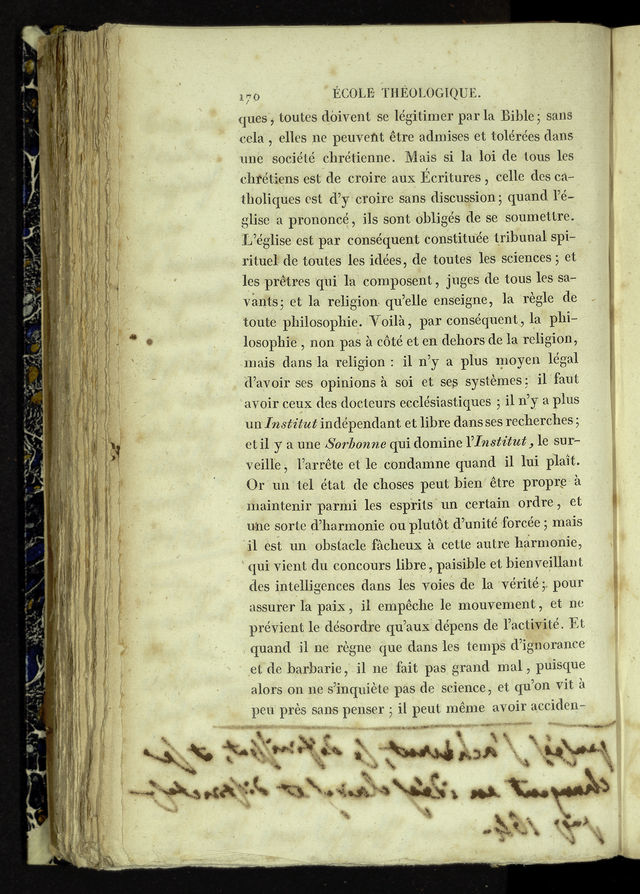 170 ÉCOLE THÉOLOGIQUE.
ques, toutes doivent se légitimer par la Bible; sans
cela, elles ne peuvent être admises et tolérées dans
une société chrétienne. Mais si la loi de tous les
chrétiens est de croire aux Écritures, celle des ca-
tholiques est d'y croire sans discussion; quand l'é-
glise a prononcé, ils sont obligés de se soumettre.
L'église est par conséquent constituée tribunal spi-
rituel de toutes les idées, de toutes les sciences; et
les prêtres qui la composent, juges de tous les sa-
vants; et la religion qu'elle enseigne, la règle de
toute philosophie. Voilà, par conséquent, la phi-
losophie, non pas à côté et en dehors de la religion,
mais dans la religion : il n'y a plus moyen légal
d'avoir ses opinions à soi et ses systèmes; il faut
avoir ceux des docteurs ecclésiastiques; il n'y a plus
un Institut indépendant et libre dans ses recherches;
et il y a une Sorbonne qui domine l'Institut, le sur-
veille, l'arrête et le condamne quand il lui plaît.
Or un tel état de choses peut bien être propre à
maintenir parmi les esprits un certain ordre, et
une sorte d'harmonie ou plutôt d'unité forcée; mais
il est un obstacle fâcheux à cette autre harmonie,
qui vient du concours libre, paisible et bienveillant
des intelligences dans les voies de la vérité; pour
assurer la paix, il empêche le mouvement, et ne
prévient le désordre qu'aux dépens de l'activité. Et
quand il ne règne que dans les temps d'ignorance
et de barbarie, il ne fait pas grand mal, puisque
alors on ne s'inquiète pas de science, et qu'on vit à
peu près sans penser; il peut même avoir acciden-